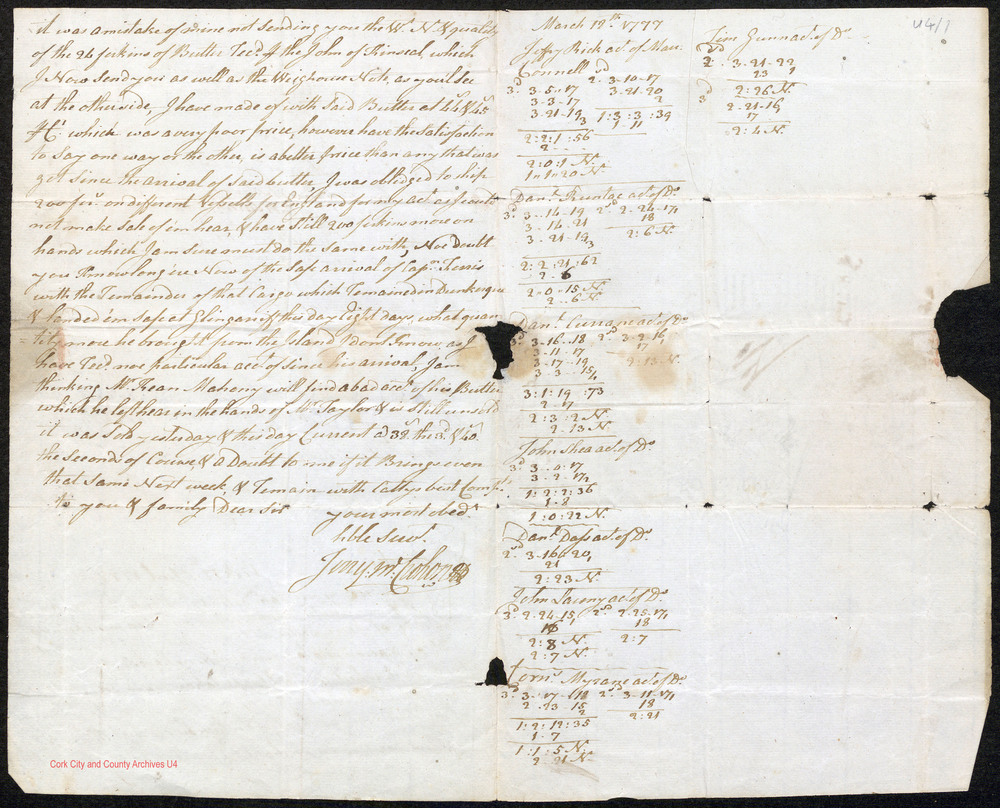 it was a mistake of mine not sending you the Wt. No. & quality
of the 26 firkins of Butter Recd. ⅌ the John of Kinseal, which
I Now Send you as well as the Weighouse Note, as youl See
at the otherside, I have made of with Said Butter at 46s & 45s
⅌ Ct. which was a very poor price, however have the Satisfaction
to Say one way or the other, is a better price than any that was
got Since the arrival of Said butter, I was obledged to ship
200 fir. on different Vessells for England for my act. as I coud
not make Sale of em hear, & have Still 200 firkins more on
hands which I am Sure must do the Same with, Noe Doubt
you Know long ere Now of the Safe arrival of Capn. Lewis
with the Remainder of that Cargo which Remained in Dunkerque
& landed em Safe at Glingariff this day Eight days, what quan
tity more he brought from the Island I dont Know, as I
have Recd. noe particular acct. of Since his arrival, I am
thinking Mr. Frean Mahony will find a bad acct. of his Butter
which he left hear in the hands of Mr. Taylor & is Still unsold
it was Sold yesterday & this day Current a 38s. the 3d. & 40s.
the Seconds of Course, & a Doubt to me if it Brings even
that Same Next week, & Remain with Cattys best Compts.
to you & family Dear Sir
your most obedt.
hble Servt.
March 19th. 1777
Jeffry Rick act. of Mau:
Connell
3d. 3-5-17 2d. 3-10-17
3-3-17 3-21-20
3-21-19 2
3 1:3:3:39
1-11
2:2:1:56
2
2:0:1 N.
1n 1n 20 N.
Danl. Runtae act. of Do.
3d. 3-14-19 2d. 2-24-17
3-14-21 18
3-21-19 2:6 N.
3
2:2:21:62
2-6
2-0-15 N.
2-6 N.
Danl. Currane act. of Do.
3d. 3-16-18 2d. 3-2-19
3-11-17
3-17-19 2:13 N.
3-3-15
3:1:19:73
2-17
2:3:2 N.
2-13 N.
John Shea act. of Do.
3d. 3-0-17
3-2-17
1:2:2:36
1-8
1:0:22 N.
Danl. Dass act. of Do.
2d. 3-16-20
21
2:23 N.
John Lacony act. of Do.
3d. 2-24-15 2d. 2-25-17
16 18
2:8 N. 2:7
2:7 N.
Corns. Mysane act. of Do.
3d. 3-17-18 2d. 3-11-17
2-23-15 18
2 2:21
1:2:12:35
1-7
1:1:5 N.
2-21 N.
Tim Gunn act. of Do.
2d. 3-21-22
23
2:26 N.
3d. 2-21-16
17
2:4 N.
U4/1
Cork City and County Archives U4